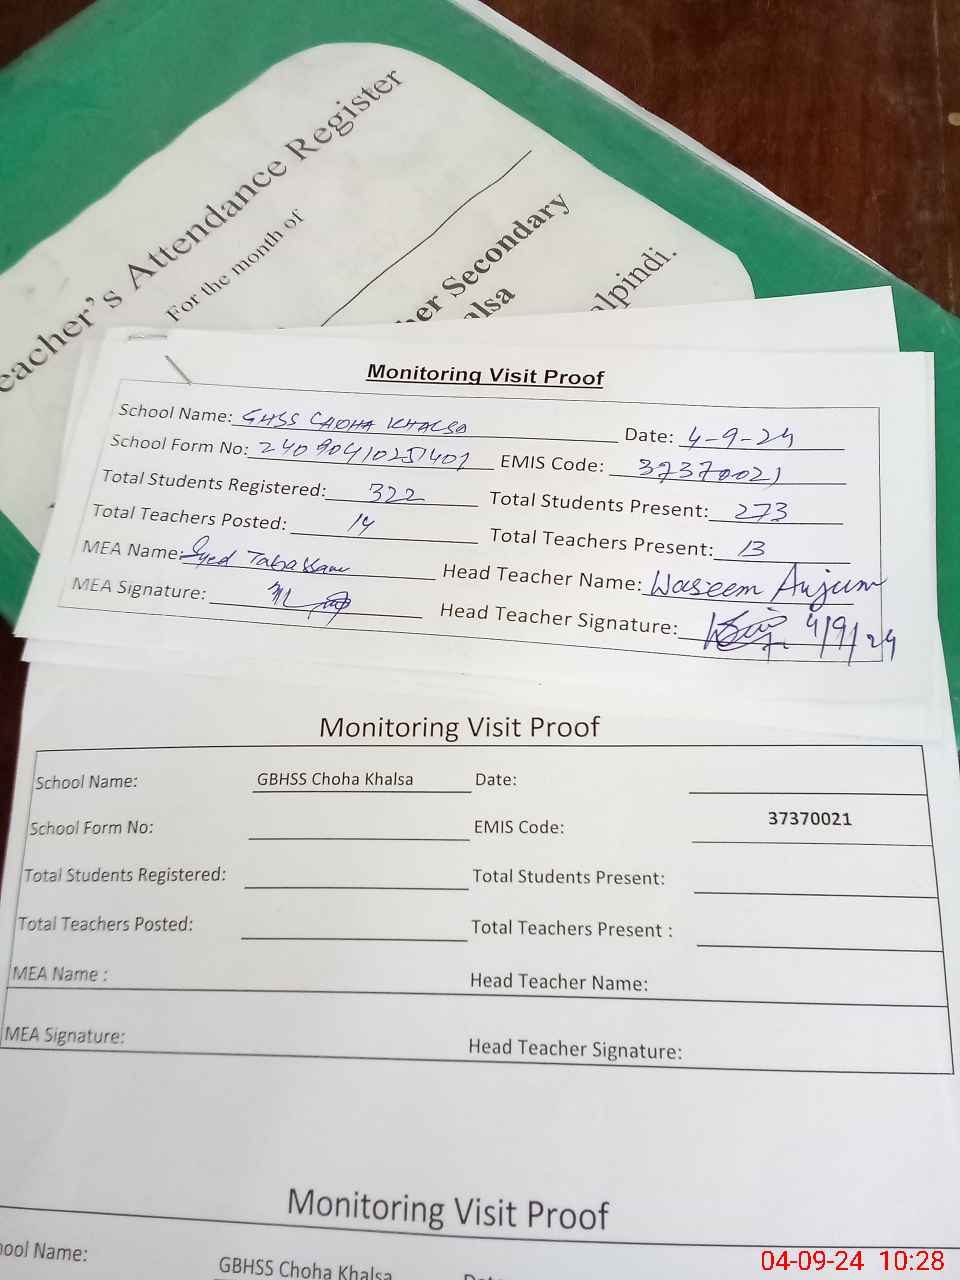 eacher's Attendance Register
For the month of
her Secondary
alsa
alpindi.
Monitoring Visit Proof
School Name: GHSS CHOHA KHALSA Date: 4-9-24
School Form No: EMIS Code: 37370021
Total Students Registered: 322 Total Students Present: 273
Total Teachers Posted: 14 Total Teachers Present: 13
MEA Name: Syed Tabassam Head Teacher Name: Waseem Anjum
MEA Signature: Head Teacher Signature: 4/9/24
Monitoring Visit Proof
School Name: GBHSS Choha Khalsa Date:
School Form No: EMIS Code: 37370021
Total Students Registered: Total Students Present:
Total Teachers Posted: Total Teachers Present :
MEA Name : Head Teacher Name:
MEA Signature: Head Teacher Signature:
Monitoring Visit Proof
hool Name: GBHSS Choha Khalsa Date:
04-09-24 10:28